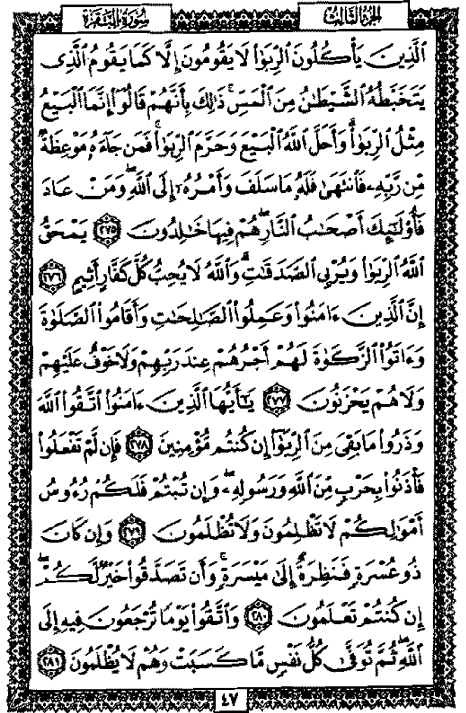 سُورَةُ البَقَرَةِ
الجزء الثالث
الَّذِينَ يَأْكُلُونَ الرِّبَوٰا۟ لَا يَقُومُونَ إِلَّا كَمَا يَقُومُ الَّذِى
يَتَخَبَّطُهُ الشَّيْطَٰنُ مِنَ الْمَسِّ ۚ ذَٰلِكَ بِأَنَّهُمْ قَالُوٓا۟ إِنَّمَا الْبَيْعُ
مِثْلُ الرِّبَوٰا۟ ۗ وَأَحَلَّ اللَّهُ الْبَيْعَ وَحَرَّمَ الرِّبَوٰا۟ ۚ فَمَن جَآءَهُۥ مَوْعِظَةٌ
مِّن رَّبِّهِۦ فَانتَهَىٰ فَلَهُۥ مَا سَلَفَ وَأَمْرُهُۥٓ إِلَى اللَّهِ ۖ وَمَنْ عَادَ
فَأُو۟لَٰٓئِكَ أَصْحَٰبُ النَّارِ ۖ هُمْ فِيهَا خَٰلِدُونَ ﴿٢٧٥﴾ يَمْحَقُ
اللَّهُ الرِّبَوٰا۟ وَيُرْبِى الصَّدَقَٰتِ ۗ وَاللَّهُ لَا يُحِبُّ كُلَّ كَفَّارٍ أَثِيمٍ ﴿٢٧٦﴾
إِنَّ الَّذِينَ ءَامَنُوا۟ وَعَمِلُوا۟ الصَّٰلِحَٰتِ وَأَقَامُوا۟ الصَّلَوٰةَ
وَءَاتَوُا۟ الزَّكَوٰةَ لَهُمْ أَجْرُهُمْ عِندَ رَبِّهِمْ وَلَا خَوْفٌ عَلَيْهِمْ
وَلَا هُمْ يَحْزَنُونَ ﴿٢٧٧﴾ يَٰٓأَيُّهَا الَّذِينَ ءَامَنُوا۟ اتَّقُوا۟ اللَّهَ
وَذَرُوا۟ مَا بَقِىَ مِنَ الرِّبَوٰٓا۟ إِن كُنتُم مُّؤْمِنِينَ ﴿٢٧٨﴾ فَإِن لَّمْ تَفْعَلُوا۟
فَأْذَنُوا۟ بِحَرْبٍ مِّنَ اللَّهِ وَرَسُولِهِۦ ۖ وَإِن تُبْتُمْ فَلَكُمْ رُءُوسُ
أَمْوَٰلِكُمْ لَا تَظْلِمُونَ وَلَا تُظْلَمُونَ ﴿٢٧٩﴾ وَإِن كَانَ
ذُو عُسْرَةٍ فَنَظِرَةٌ إِلَىٰ مَيْسَرَةٍ ۚ وَأَن تَصَدَّقُوا۟ خَيْرٌ لَّكُمْ ۖ
إِن كُنتُمْ تَعْلَمُونَ ﴿٢٨٠﴾ وَاتَّقُوا۟ يَوْمًا تُرْجَعُونَ فِيهِ إِلَى
اللَّهِ ۖ ثُمَّ تُوَفَّىٰ كُلُّ نَفْسٍ مَّا كَسَبَتْ وَهُمْ لَا يُظْلَمُونَ ﴿٢٨١﴾
٤٧